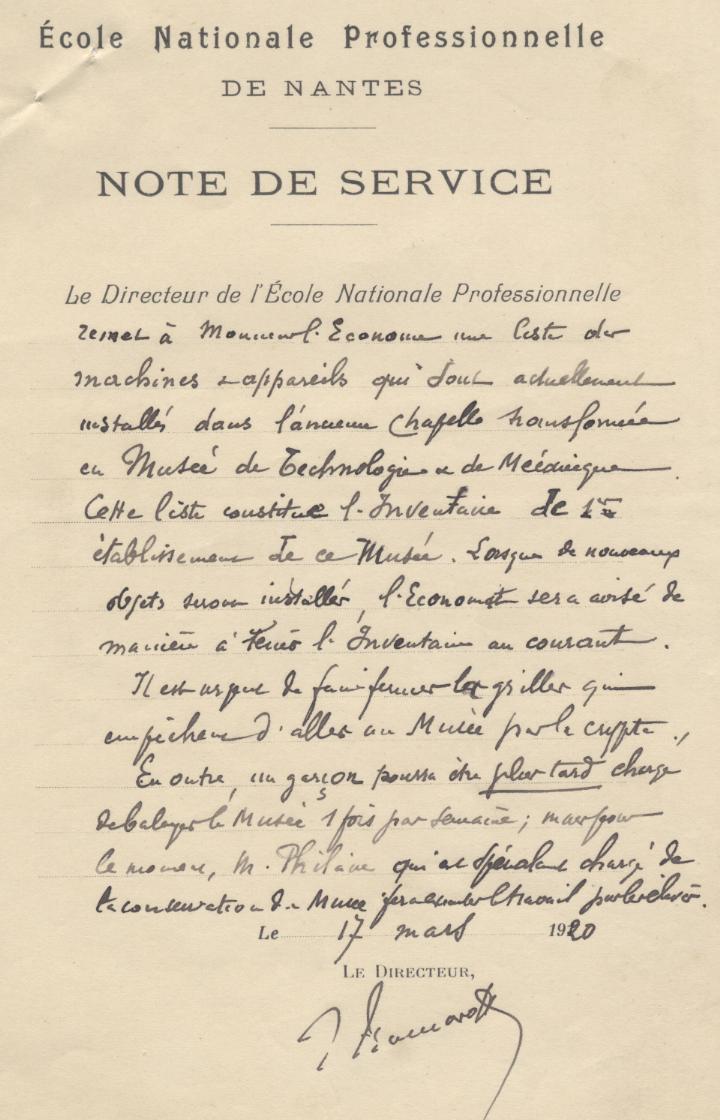 École Nationale Professionnelle
DE NANTES
NOTE DE SERVICE
Le Directeur de l'École Nationale Professionnelle
remet à Monsieur l'Econome une liste des
machines & appareils qui sont actuellement
installés dans l'ancienne chapelle transformée
en Musée de Technologie & de Mécanique.
Cette liste constitue l'Inventaire de 1er
établissement de ce Musée. Lorsque de nouveaux
objets seront installés, l'Economat sera avisé de
manière à tenir l'Inventaire au courant.
Il est urgent de faire fermer les grilles qui
empêchent d'aller au Musée par la crypte.
En outre, un garçon pourra être plus tard chargé
de balayer le Musée 1 fois par semaine; mais pour
le moment, M. qui est spécialement chargé de
la conservation du Musée fera exécuter le travail par les élèves.
Le 17 mars 1920
LE DIRECTEUR,